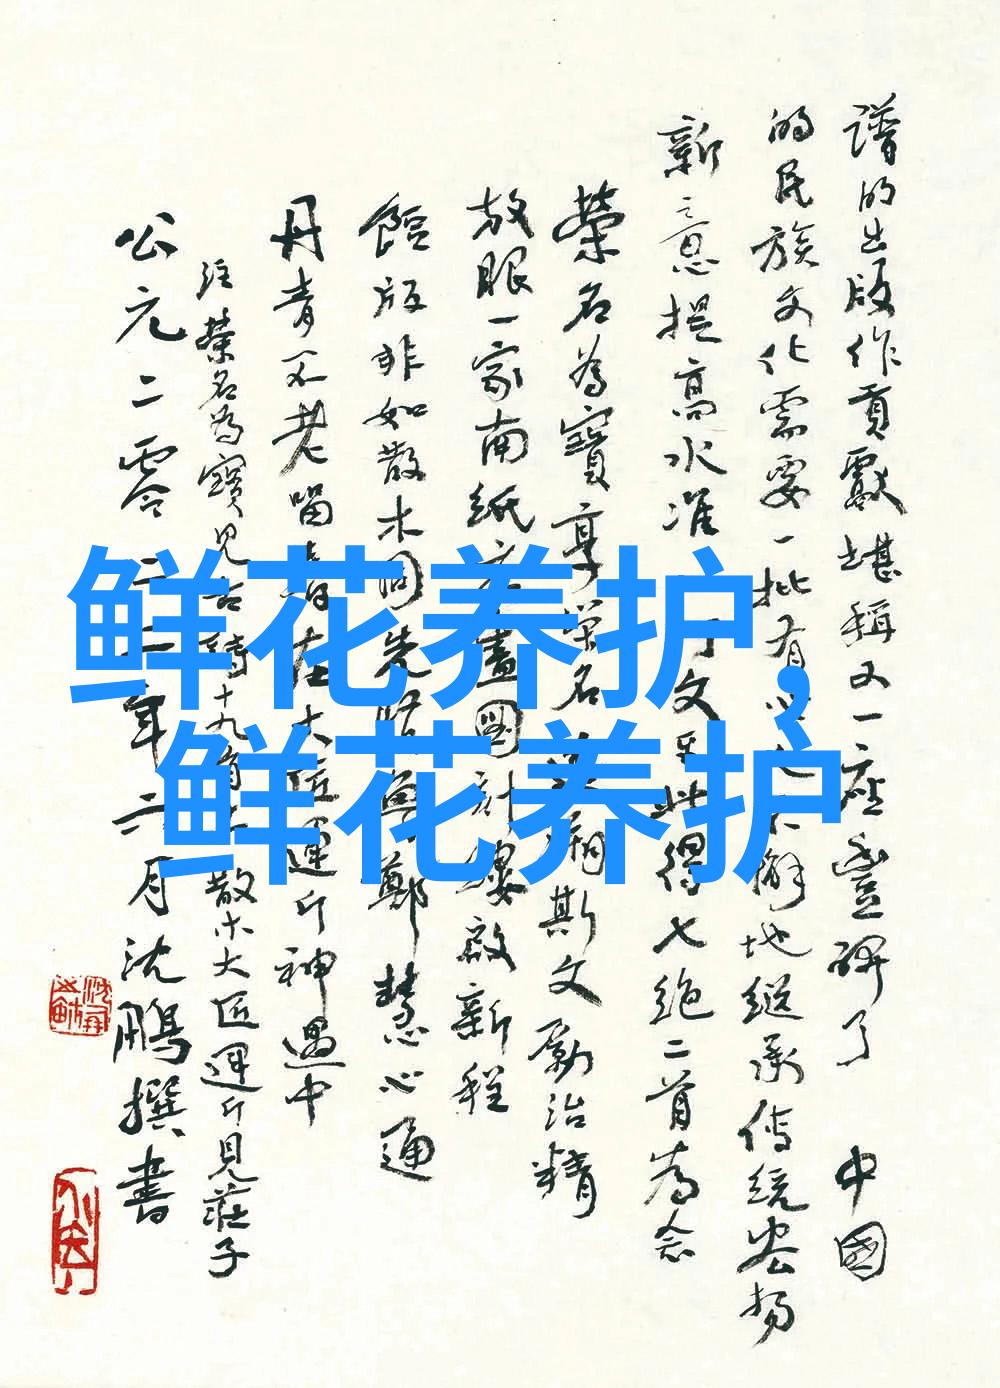 谱的出版作贡献堪称又一座丰碑了 中国
的民族文化需要一批有 解地继承传统宏扬
新意提高水准 文至此得七绝二首为念
荣名为宝享荣名 斯文励治精
放眼一家南纸 画图计 启新程
馆版非如散木同先 郑慧心通
丹青不老留 在大匠运斤神遇中
注荣名为宝见古诗十九首 散木大匠运斤见庄子
公元二零一二年六月沈鹏撰书
鲜花养护,
鲜花养护